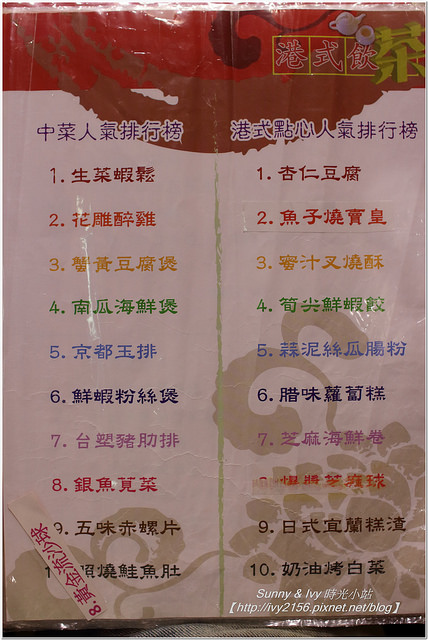 港式飲茶
中菜人氣排行榜
1. 生菜蝦鬆
2. 花雕醉雞
3. 蟹黃豆腐煲
4. 南瓜海鮮煲
5. 京都玉排
6. 鮮蝦粉絲煲
7. 台塑豬肋排
8. 銀魚莧菜
9. 五味赤螺片
燒鮭魚肚
8. 黃金流沙球
港式點心人氣排行榜
1. 杏仁豆腐
2. 魚子燒賣皇
3. 蜜汁叉燒酥
4. 筍尖鮮蝦餃
5. 蒜泥絲瓜腸粉
6. 腊味蘿蔔糕
7. 芝麻海鮮卷
9. 日式宜蘭糕渣
10. 奶油烤白菜
Sunny & Ivy 時光小站
【http://ivy2156.pixnet.net/blog】